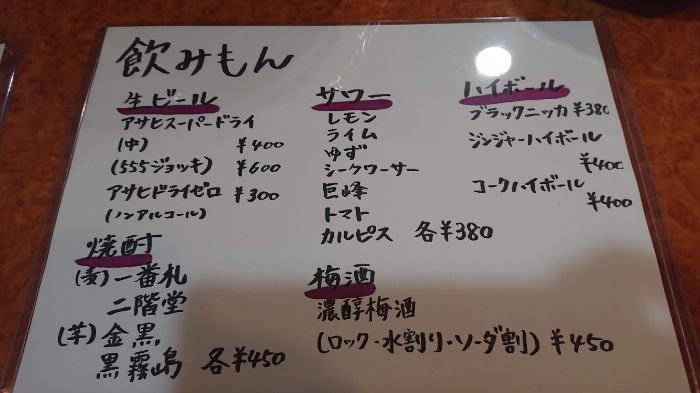 飲みもん
生ビール
アサヒスーパードライ
(中) ¥400
(555ジョッキ) ¥600
アサヒドライゼロ ¥300
(ノンアルコール)
焼酎
(麦) 一番札
二階堂
(芋) 金黒
黒霧島 各¥450
サワー
レモン
ライム
ゆず
シークワーサー
巨峰
トマト
カルピス 各¥380
梅酒
濃醇梅酒
(ロック・水割り・ソーダ割) ¥450
ハイボール
ブラックニッカ ¥380
ジンジャーハイボール
¥400
コークハイボール
¥400